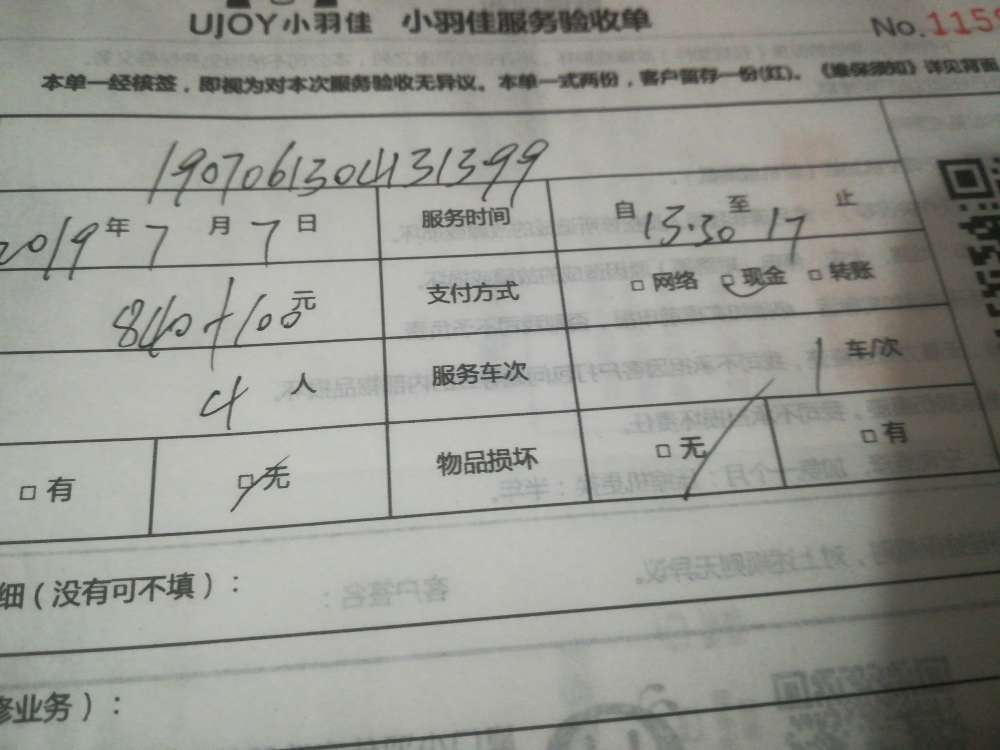 UJOY小羽佳 小羽佳服务验收单 No.115
本单一经核签，即视为对本次服务验收无异议。本单一式两份，客户留存一份(红)。《维保须知》详见背面
190706130431399
2019年7月7日 服务时间 自13.30至17止
840+100元 支付方式 □网络 □现金 □转账
4人 服务车次 1车/次
□有 □无 物品损坏 □无 □有
细（没有可不填）：
修业务）：